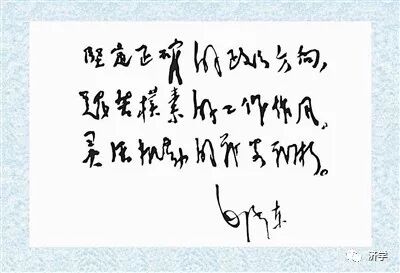 坚定正確的政治方向，
艰苦樸素的工作作风，
灵活机动的战略战术。
毛泽东
济学